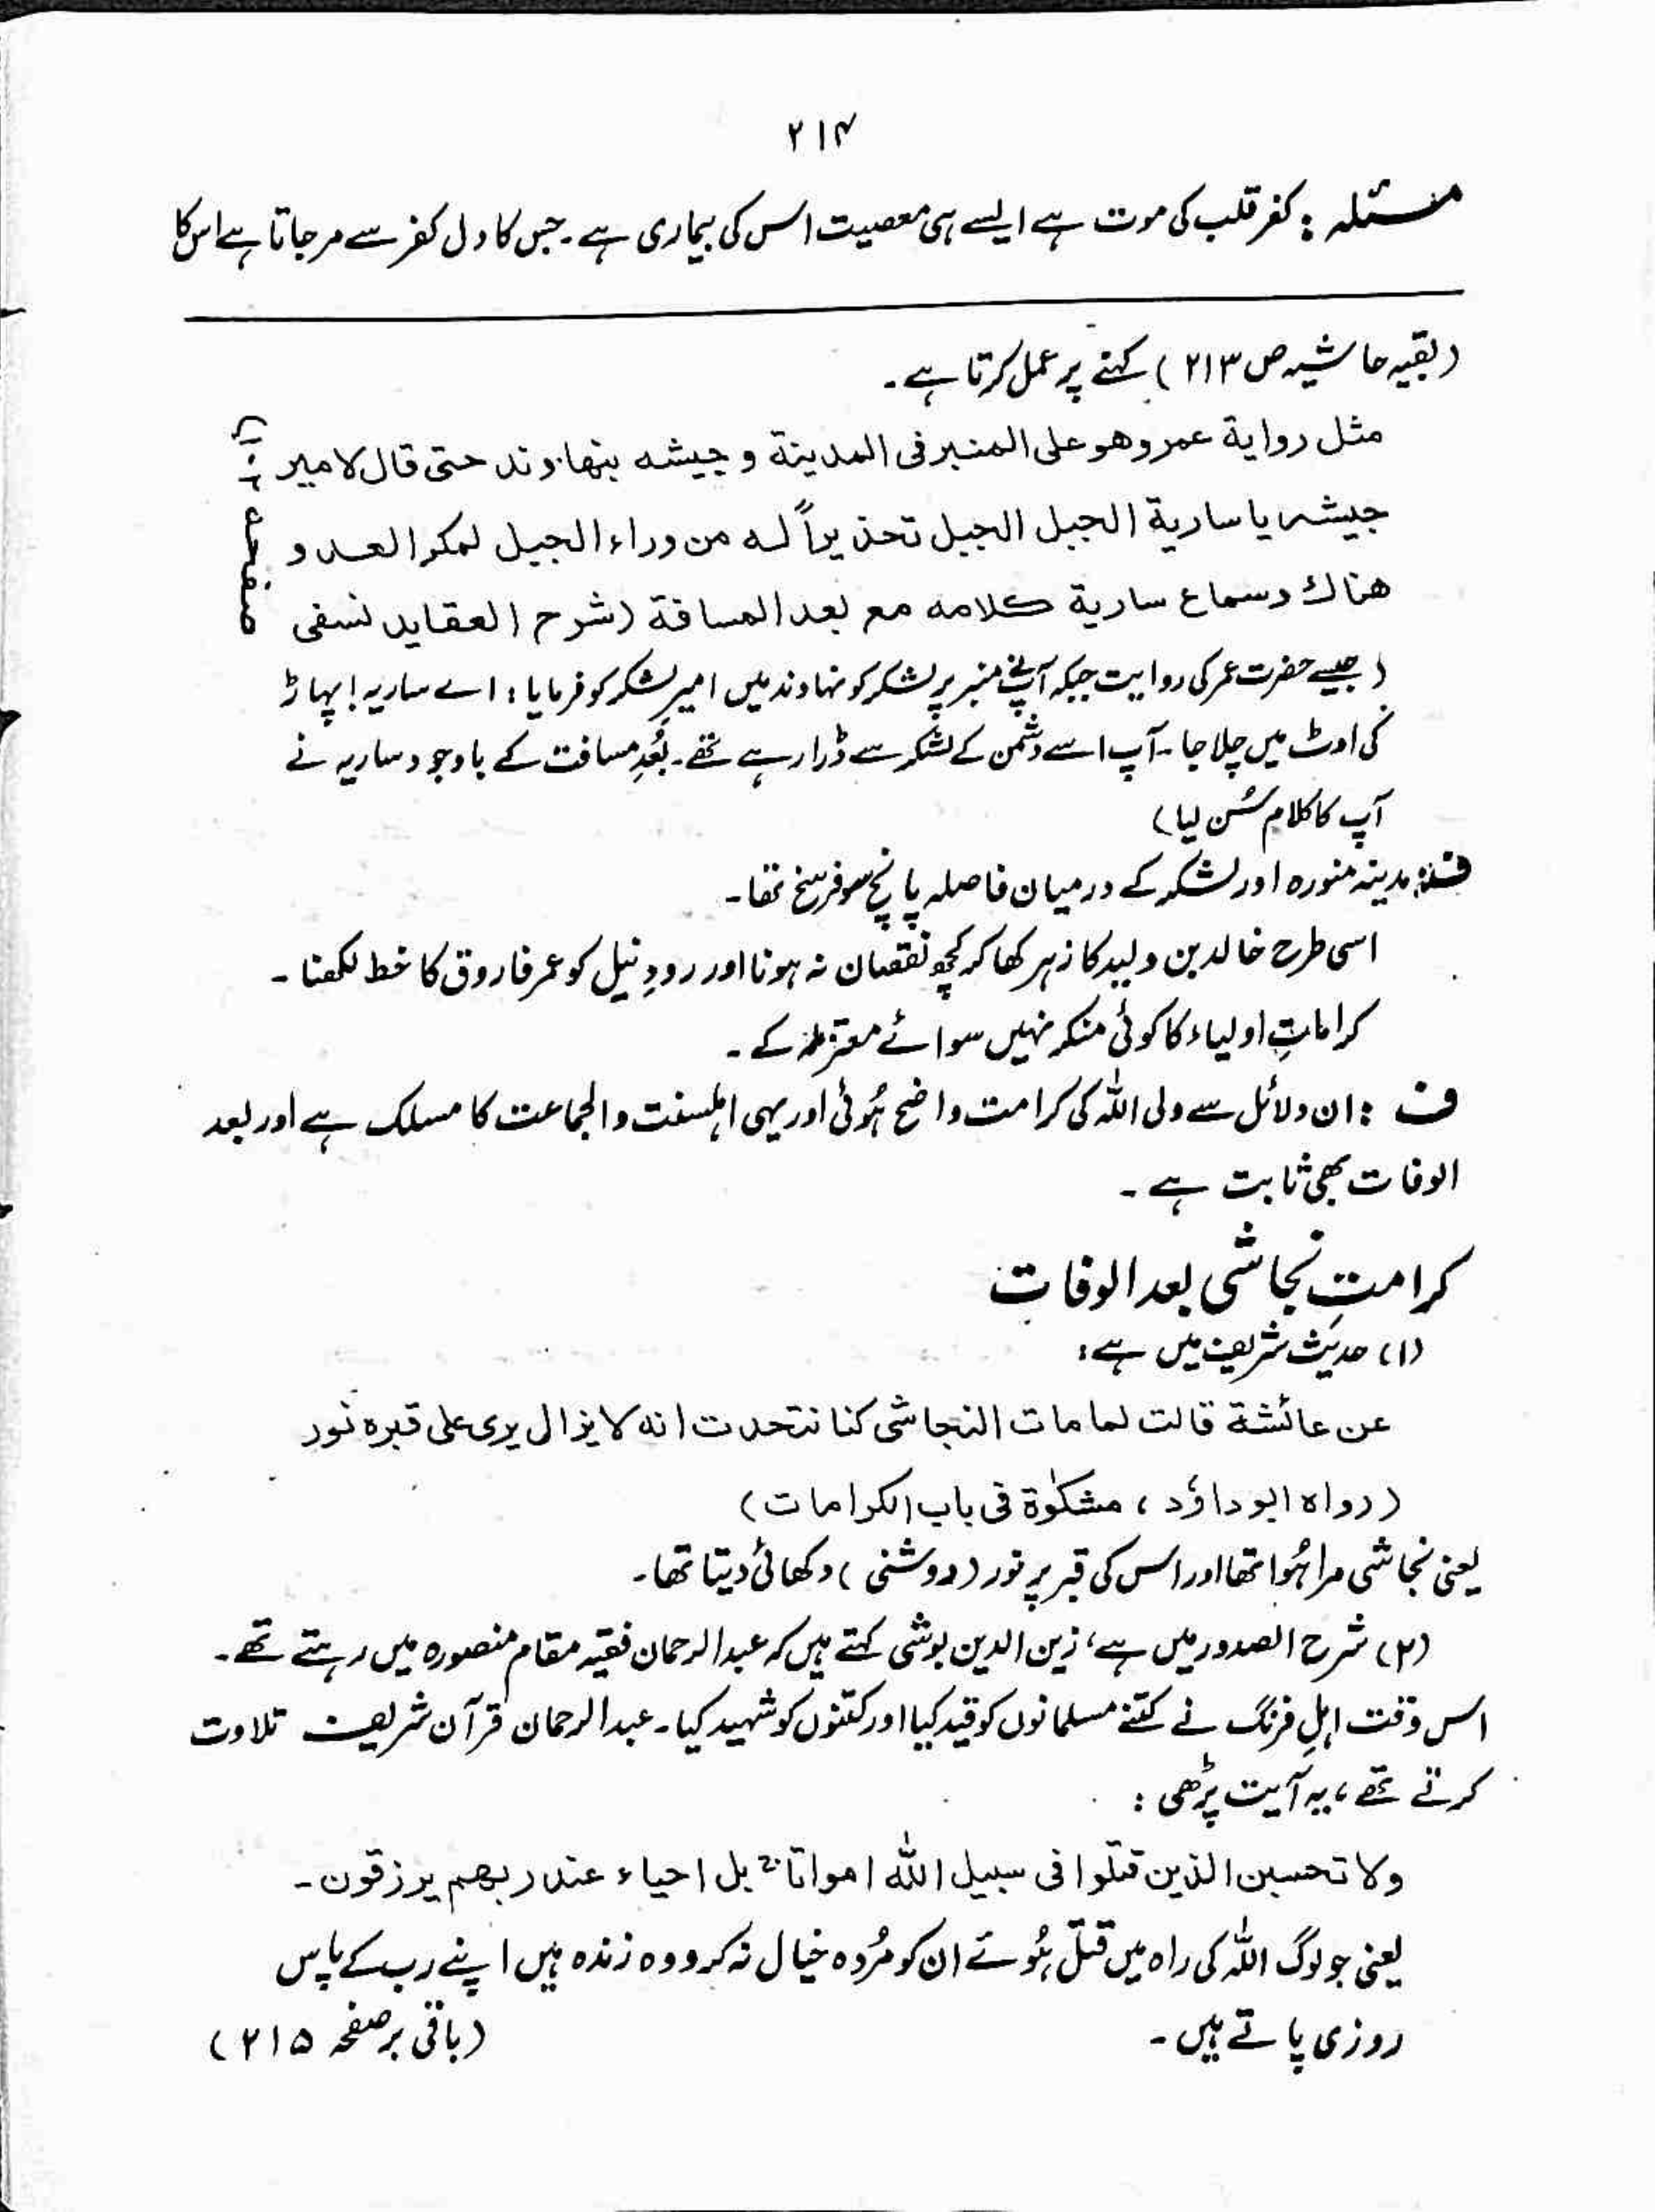 ۲۱۴
مسئلہ : کفر قلب کی موت ہے ایسے ہی معصیت اس کی بیماری ہے۔ جس کا دل کفر سے مر جاتا ہے اس کا
(بقیہ حاشیہ ص ۲۱۳) کہنے پر عمل کرتا ہے۔
مثل روایة عمر وهو علی المنبر فی المدینة و جیشه بنهاوند حتی قال لامیر
جیشه یا ساریة الجبل الجبل تحذیراً له من وراء الجبل لمکر العدو
هناك وسماع ساریة کلامه مع بعد المسافة (شرح العقاید نسفی
(جیسے حضرت عمر کی روایت جبکہ آپنے منبر پر لشکر کو نہاوند میں امیر لشکر کو فرمایا : اے ساریہ! پہاڑ
کی اوٹ میں چلا جا ۔ آپ اسے دشمن کے لشکر سے ڈرا رہے تھے۔ بُعدِ مسافت کے باوجود ساریہ نے
آپ کا کلام سُن لیا)
ف : مدینہ منورہ اور لشکر کے درمیان فاصلہ پانچ سو فرسخ تھا۔
اسی طرح خالد بن ولید کا زہر کھا کر کچھ نقصان نہ ہونا اور رودِ نیل کو عمر فاروق کا خط لکھنا ۔
کراماتِ اولیاء کا کوئی منکر نہیں سوائے معتزلہ کے ۔
ف : ان دلائل سے ولی اللہ کی کرامت واضح ہُوئی اور یہی اہلسنت والجماعت کا مسلک ہے اور بعد
الوفات بھی ثابت ہے ۔
کرامتِ نجاشی بعد الوفات
(۱) حدیث شریف میں ہے :
عن عائشة قالت لما مات النجاشی کنا نتحدث انه لا یزال یری علی قبره نور
(رواه ابو داؤد ، مشکوٰة فی باب الکرامات)
یعنی نجاشی مرا ہُوا تھا اور اس کی قبر پر نور (روشنی) دکھائی دیتا تھا۔
(۲) شرح الصدور میں ہے، زین الدین بوشی کہتے ہیں کہ عبدالرحمان فقیہ مقام منصورہ میں رہتے تھے۔
اس وقت اہلِ فرنگ نے کتنے مسلمانوں کو قید کیا اور کتنوں کو شہید کیا۔ عبدالرحمان قرآن شریف تلاوت
کرتے تھے ، یہ آیت پڑھی :
ولا تحسبن الذین قتلوا فی سبیل اللہ امواتا ط بل احیاء عند ربهم یرزقون۔
یعنی جو لوگ اللہ کی راہ میں قتل ہُوئے ان کو مُردہ خیال نہ کرو وہ زندہ ہیں اپنے رب کے پاس
روزی پاتے ہیں ۔ (باقی بر صفحہ ۲۱۵)